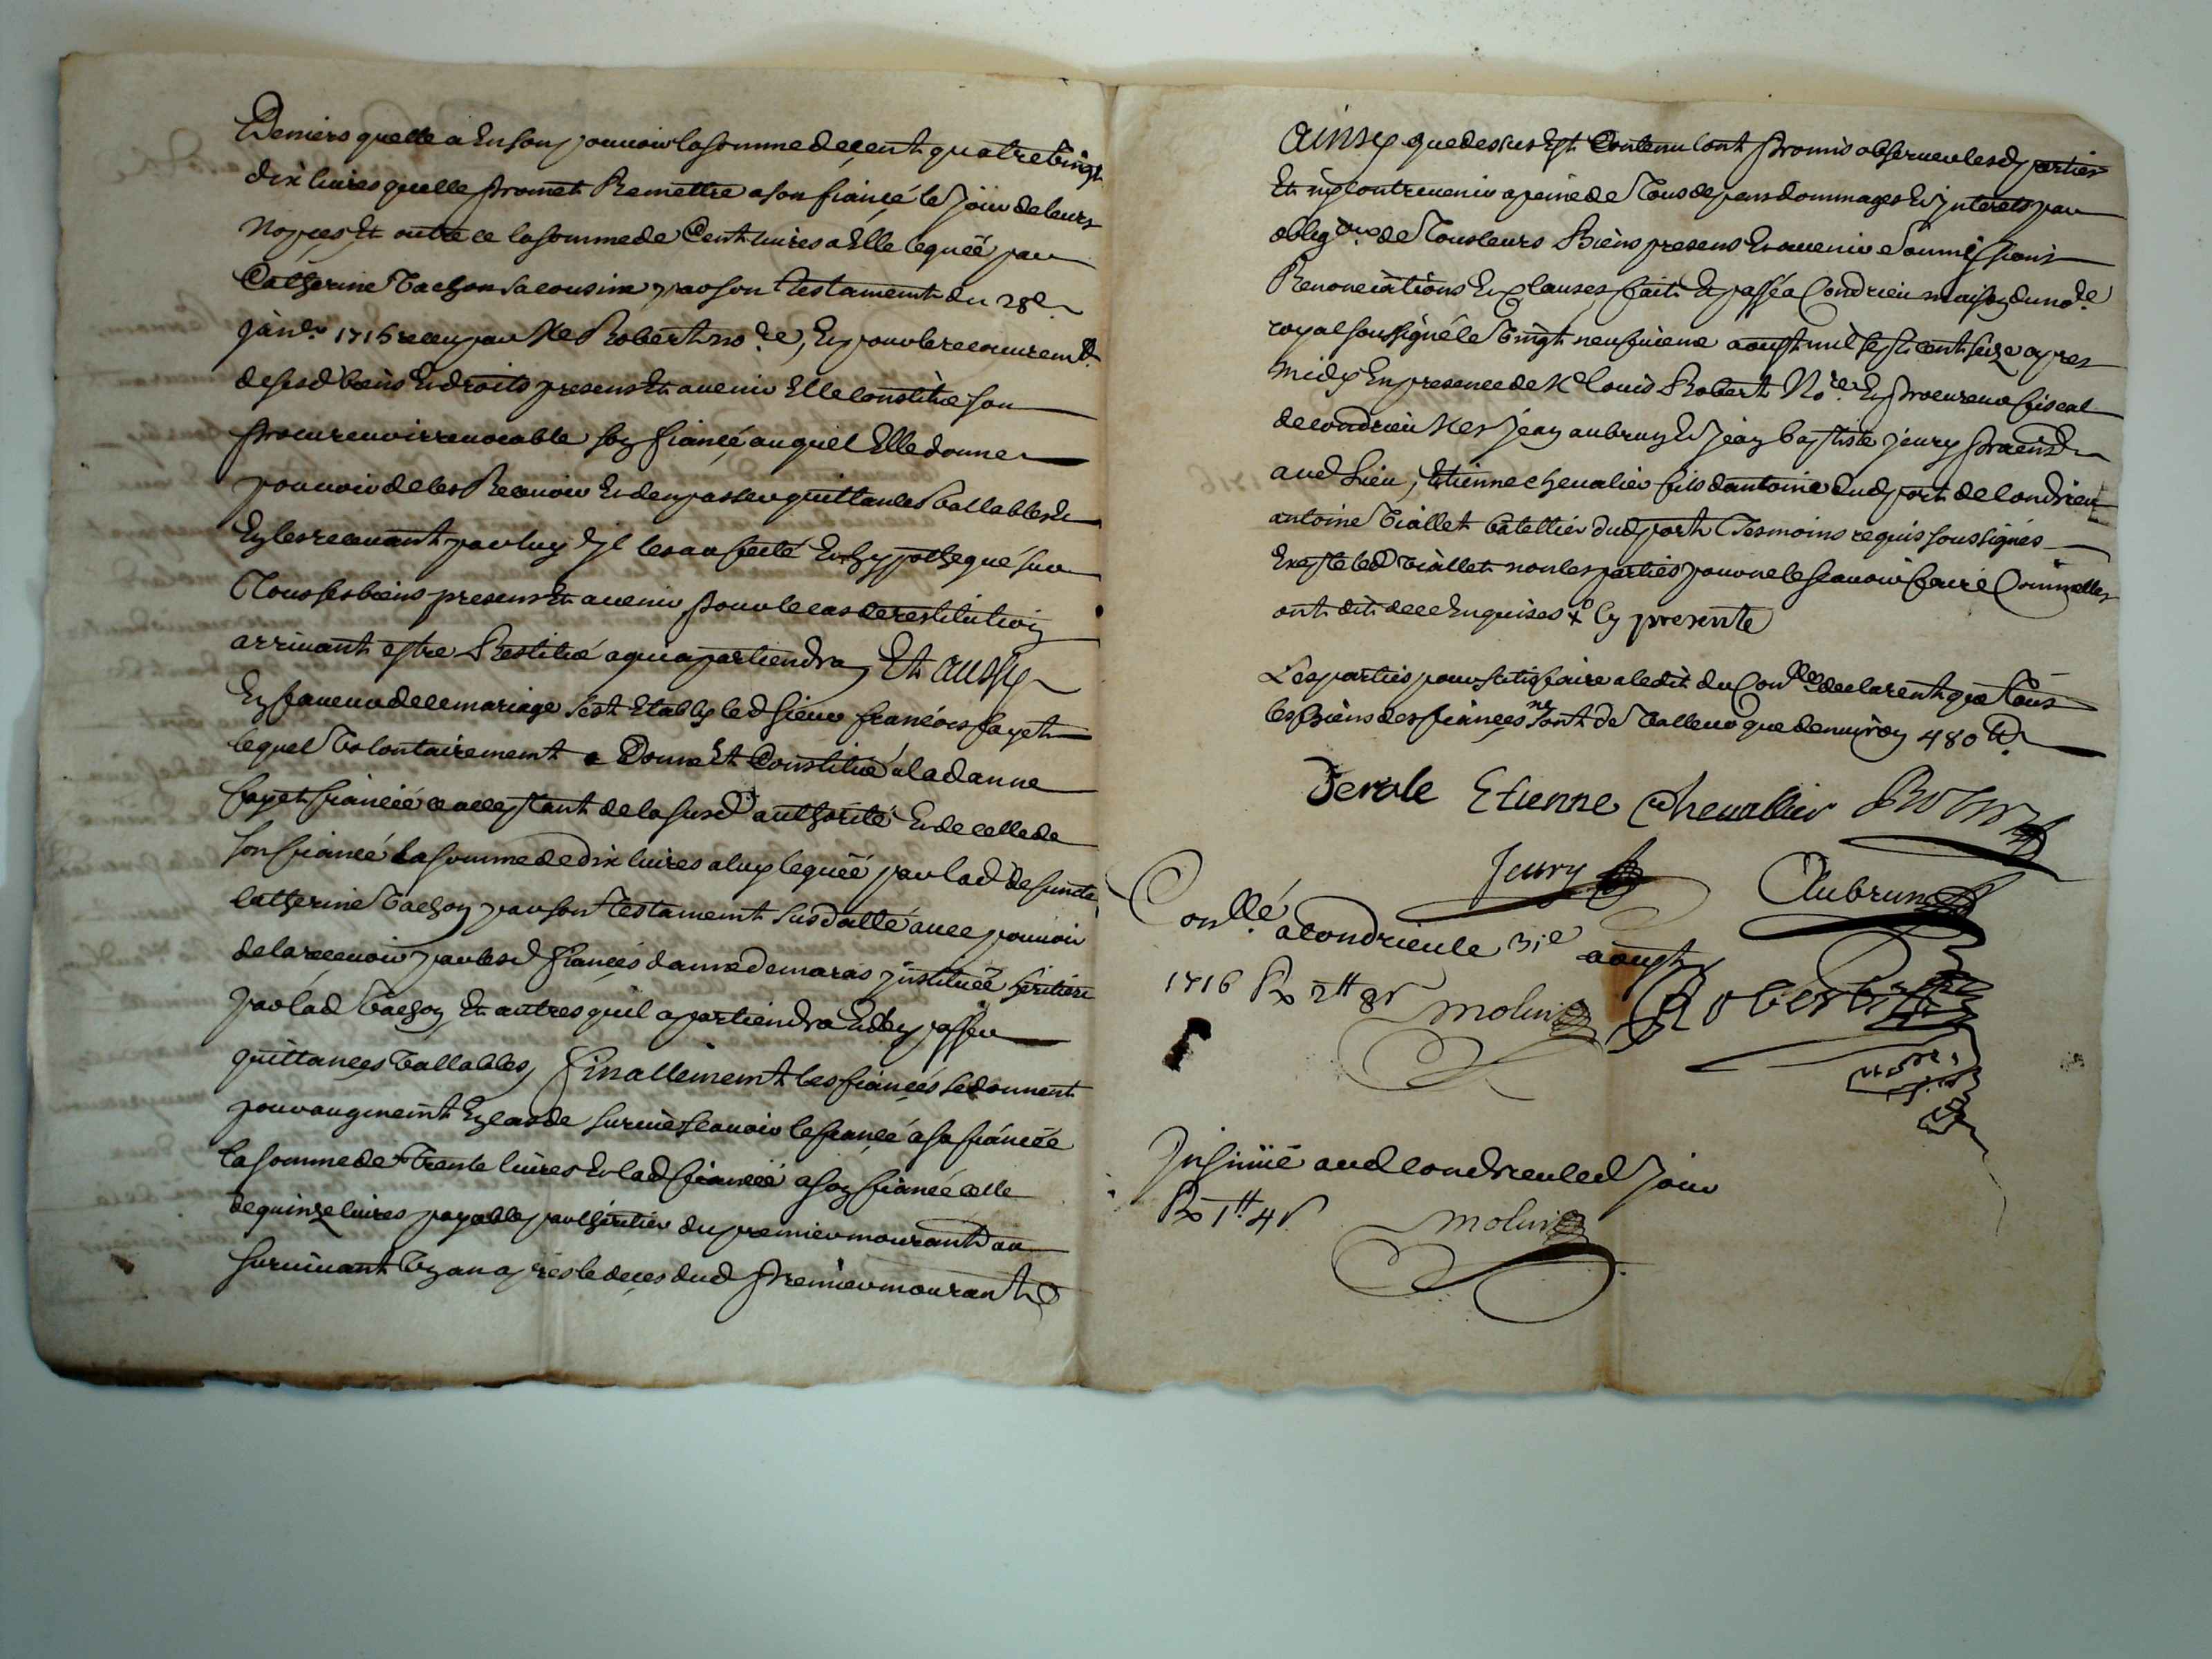 Deniers quelle a En son pouuoir la somme de cent quatre Vingt
dix liures quelle promet Remettre a son fiancé le Jour de leurs
Nopces Et outre ce la somme de Cent liures a Elle leguée par
Catherine Vachon sa cousine par son testament du 28e
janer 1716 receu par Me Robert nore, Et pour le recouuremt
de sesd biens Et droits presens Et auenir Elle constitue son
procureur irreuocable son fiancé, auquel Elle donne
pouuoir de les Receuoir Et den passer quittances Vallables Et
En les receuant par luy Il les a affecté Et hypothequé sur
Tous ses biens presens Et auenir pour le cas de restitution
arriuant estre Restitué a qui apartiendra, Et aussy
En faueur de ce mariage s'est Estably led sieur francois fayet
lequel Volontairement a Donné Et Constitué a lad anne
fayet fiancée ce acceptant de la susd authorité Et de celle de
son fiancé La somme de dix liures a luy leguée par lad defuncte
Catherine Vachon par son testament susdatté auec pouuoir
de la receuoir par lesd fiancés d'anne demaras jnstituée heritiere
par lad Vachon, Et autres quil apartiendra Et d'en passer
quittances Vallables, finallement les fiancés se donnent
pour augment En cas de suruie scauoir le fiancé a sa fiancée
la somme de Trente liures Et lad fiancée a son fiancé celle
de quinze liures payable par lheritier du premier mourant au
suruiuant Un an apres le deces dud premier mourant
Ainsy que dessus Est Contenu lont promis obseruer lesd parties
Et ny contreuenir a peine de Tous depens dommages Et jnterets par
obligons de Tous leurs Biens presens Et auenir soumissions
Renonciations Et clauses, fait Et passé a Condrieu maison du nore
royal soussigné le Vingt neufuieme aoust mil sept cent seize apres
midy En presence de Me louis Robert Nore Et procureur fiscal
de condrieu Mes jean aubrun Et jean baptiste jeury praticiens
aud Lieu, Etienne cheualier fils dantoine dud port de Condrieu
antoine Viallet batellier dud port Tesmoins requis soussignés
Excepté led Viallet non les parties pour ne le scauoir faire Comme elles
ont dit de ce Enquises
Les parties pour satisfaire a ledit du Conlle declarent que Tous
les Biens des fiancés ne sont de Valleur que denuiron 480 tt
Derole Etienne Cheuallier Robert
Jeury Aubrun
Conllé a Condrieu le 31e aoust
1716 Rx 2tt 8s Molin Robert
nore
Jnsinüé aud condrieu led jour
Rx 1tt 4s
Molin